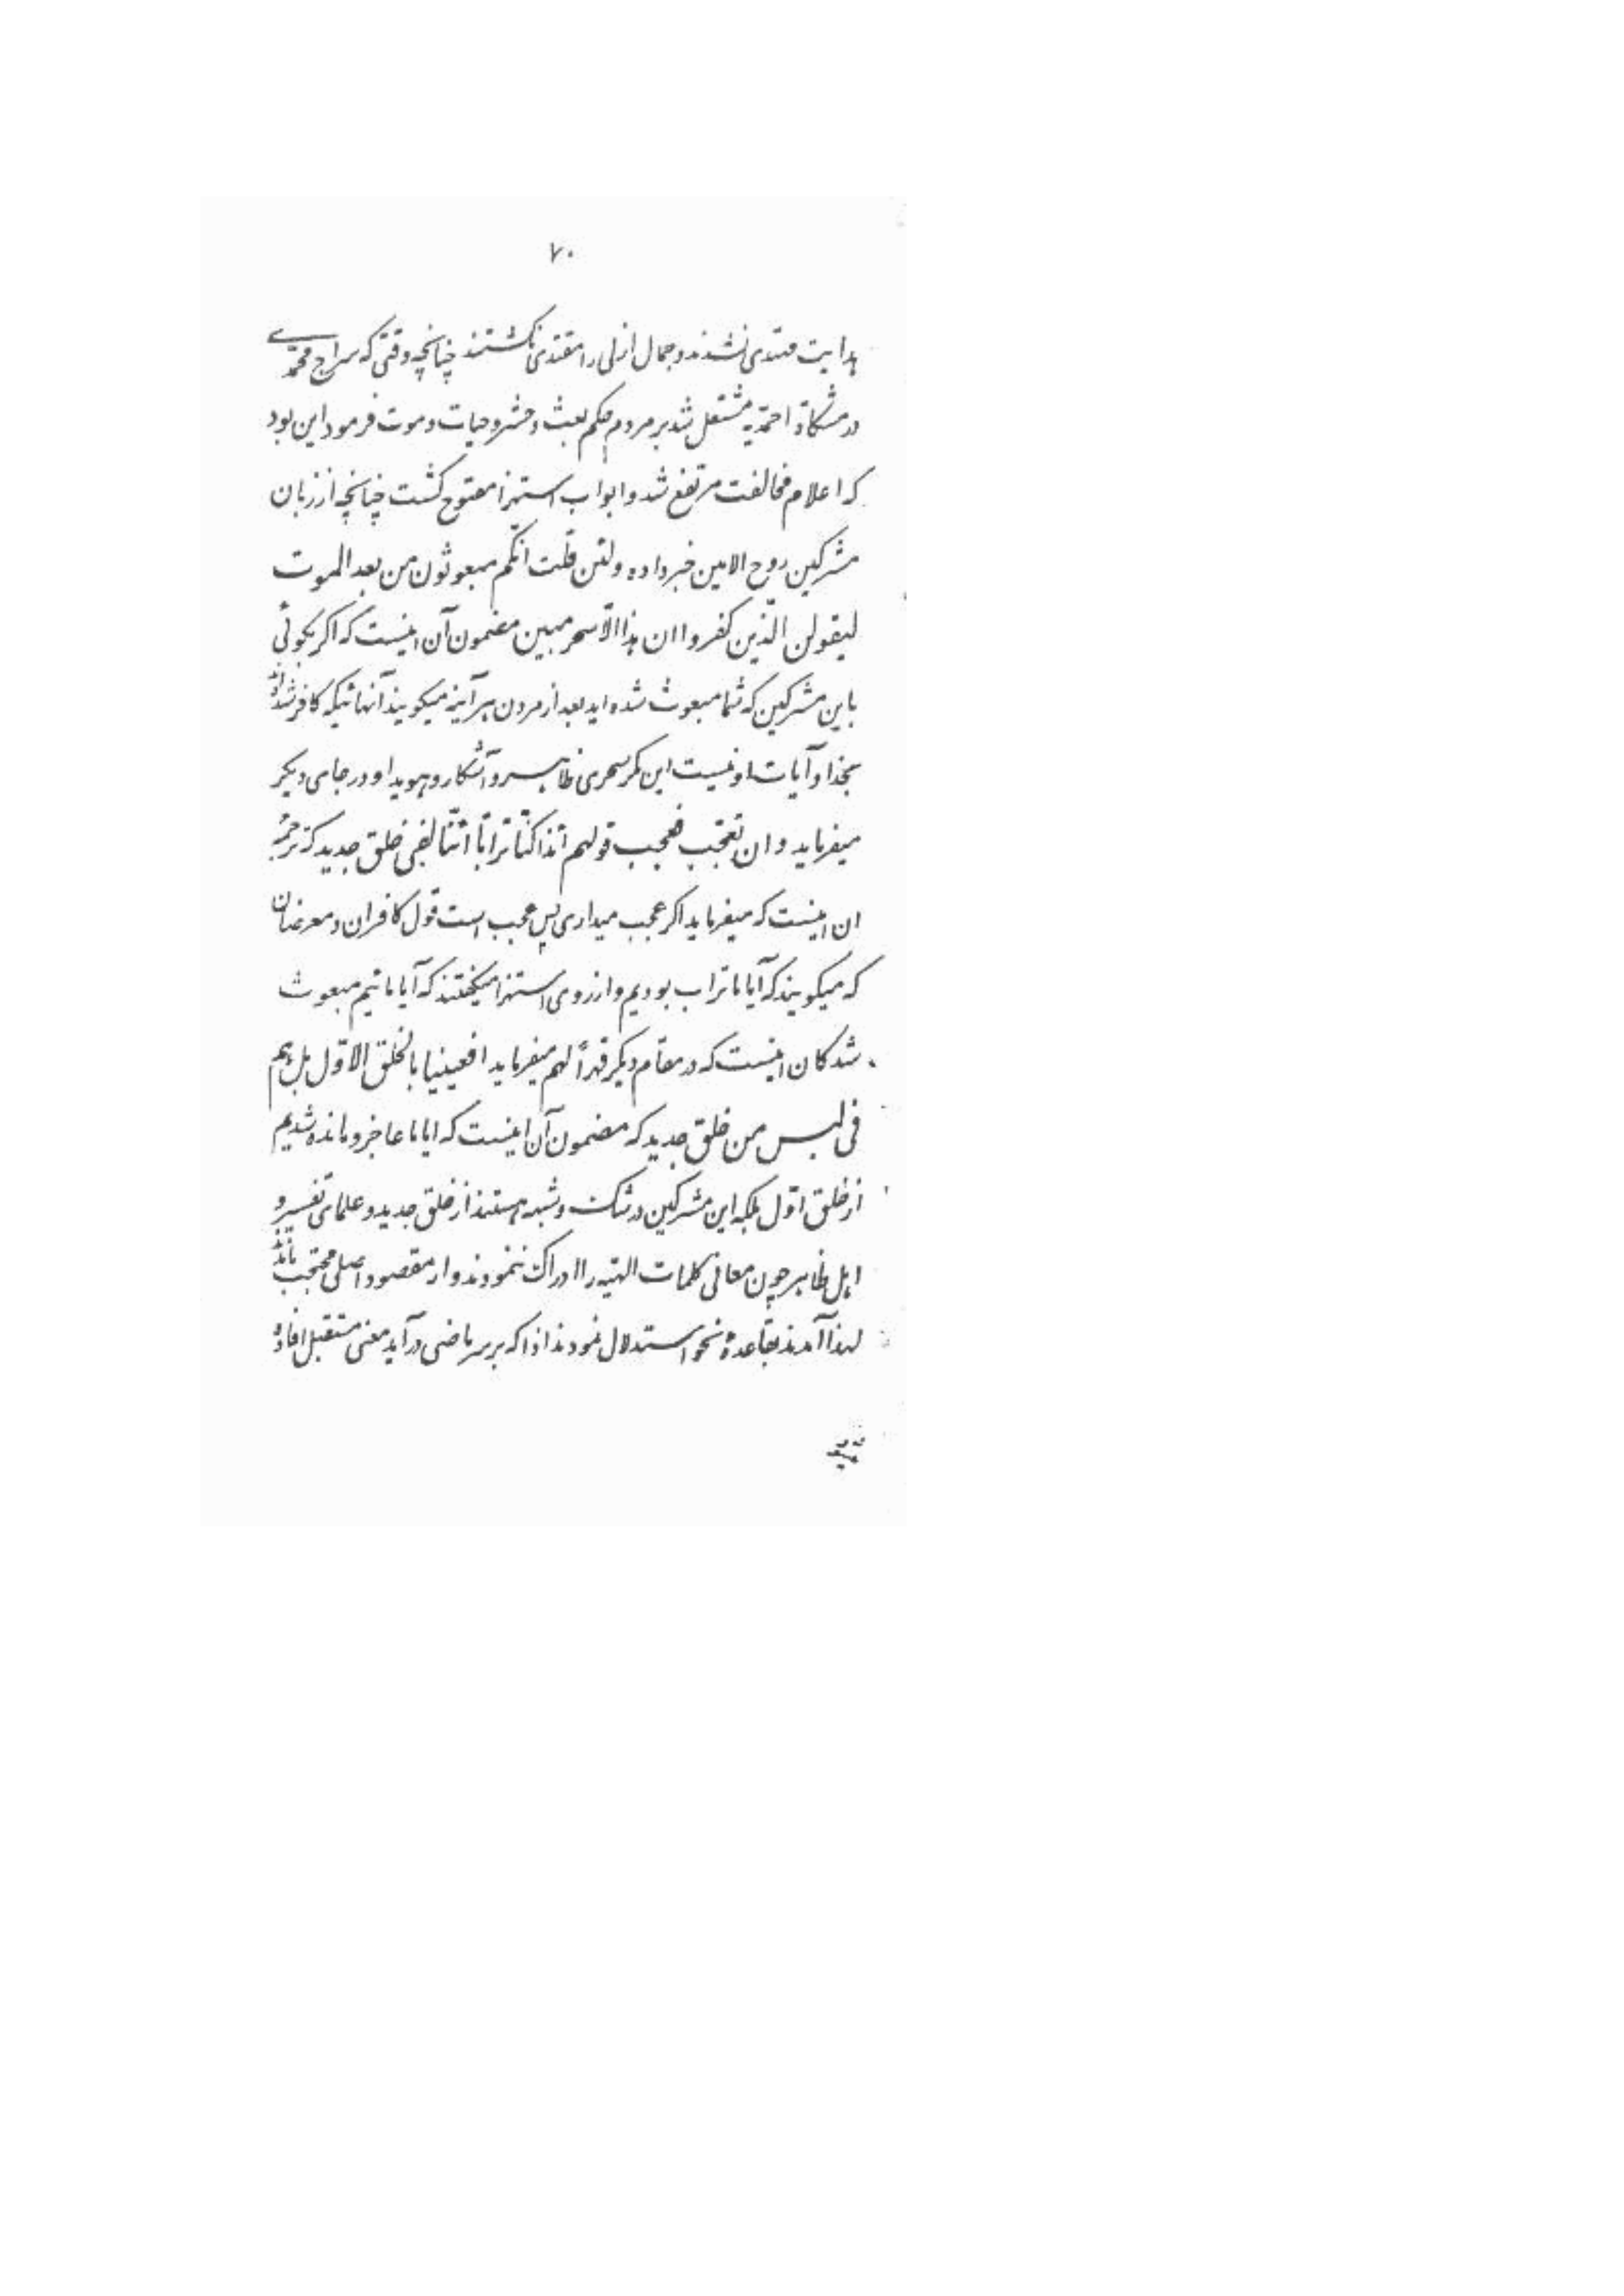 ۷۰
هدایت مهتدی نشدند و جمال ازلی را مقتدی نکشتند چنانچه وقتی که سراج محمّدی
در مشکاة احمدّیه مشتعل شد بر مردم حکم بعث و حشر و حیات و موت فرمود این بود
که اعلام مخالفت مرتفع شد و ابواب استهزا مفتوح کشت چنانچه از زبان
مشرکین روح الامین خبر داده و لئن قلت انّکم مبعوثون من بعد الموت
لیقولن الّذین کفروا ان هذا الّا سحر مبین مضمون آن اینست که اکر بکوئی
باین مشرکین که شما مبعوث شده اید بعد از مردن هر آینه میکویند آنهائیکه کافر شده‌اند
بخدا و آیات او نیست این مکر سحری ظاهر و آشکار و هویدا و در جای دیکر
میفرماید و ان تعجّب فعجب قولهم ءاذا کنّا تراباً ائنّا لفی خلق جدید که ترجمهٔ
ان اینست که میفرماید اکر عجب میداری پس عجب است قول کافران و معرضان
که میکویند که آیا ما تراب بودیم و از روی استهزا میکفتند که آیا مائیم مبعوث
شدکان اینست که در مقام دیکر قهراً لهم میفرماید افعیینا بالخلق الاوّل بل هم
فی لبس من خلق جدید که مضمون آن اینست که ایا ما عاجز و مانده شدیم
از خلق اوّل بلکه این مشرکین در شک و شبهه هستند از خلق جدید و علمای تفسیر و
اهل ظاهر چون معانی کلمات الهیّه را ادراک ننمودند و از مقصود اصلی محتجب ماندند
لهذا آمدند بقاعدهٔ نحو استدلال نمودند اذا که بر سر ماضی در آید معنی مستقبل افاده
میشود